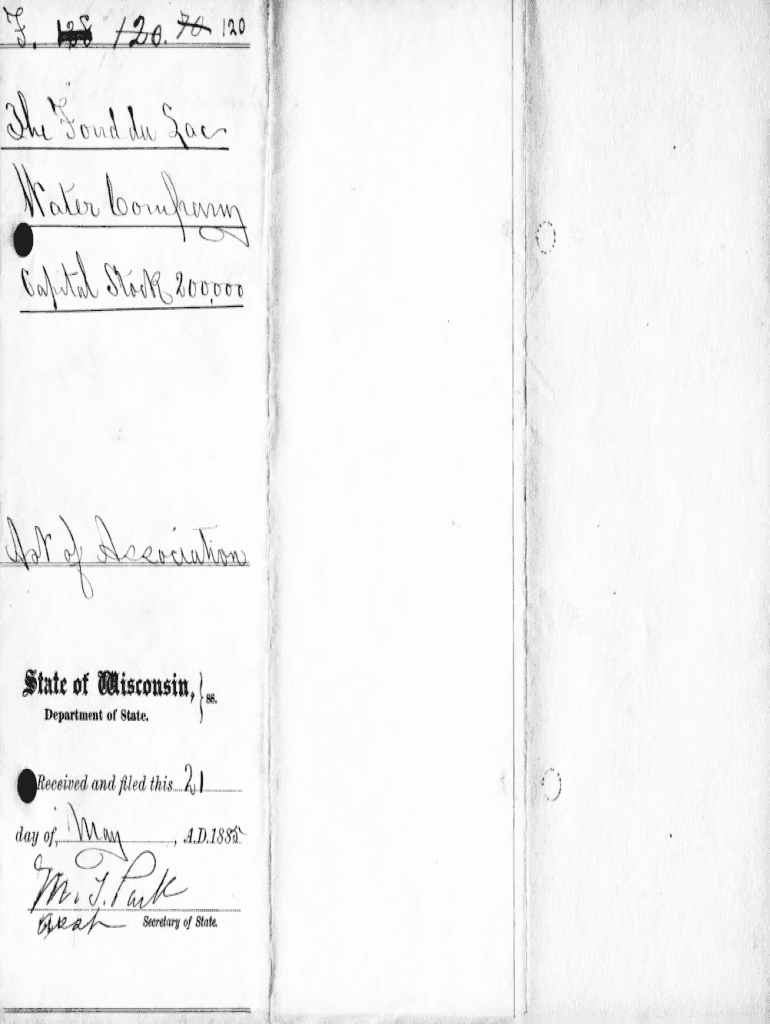 F. 128 120. 70 120
The Fond du Lac
Water Company
Capital Stock 200,000
Art of Association
State of Wisconsin, } ss.
Department of State.
Received and filed this 21
day of May, A.D. 1885
M. T. Park
Asst Secretary of State.